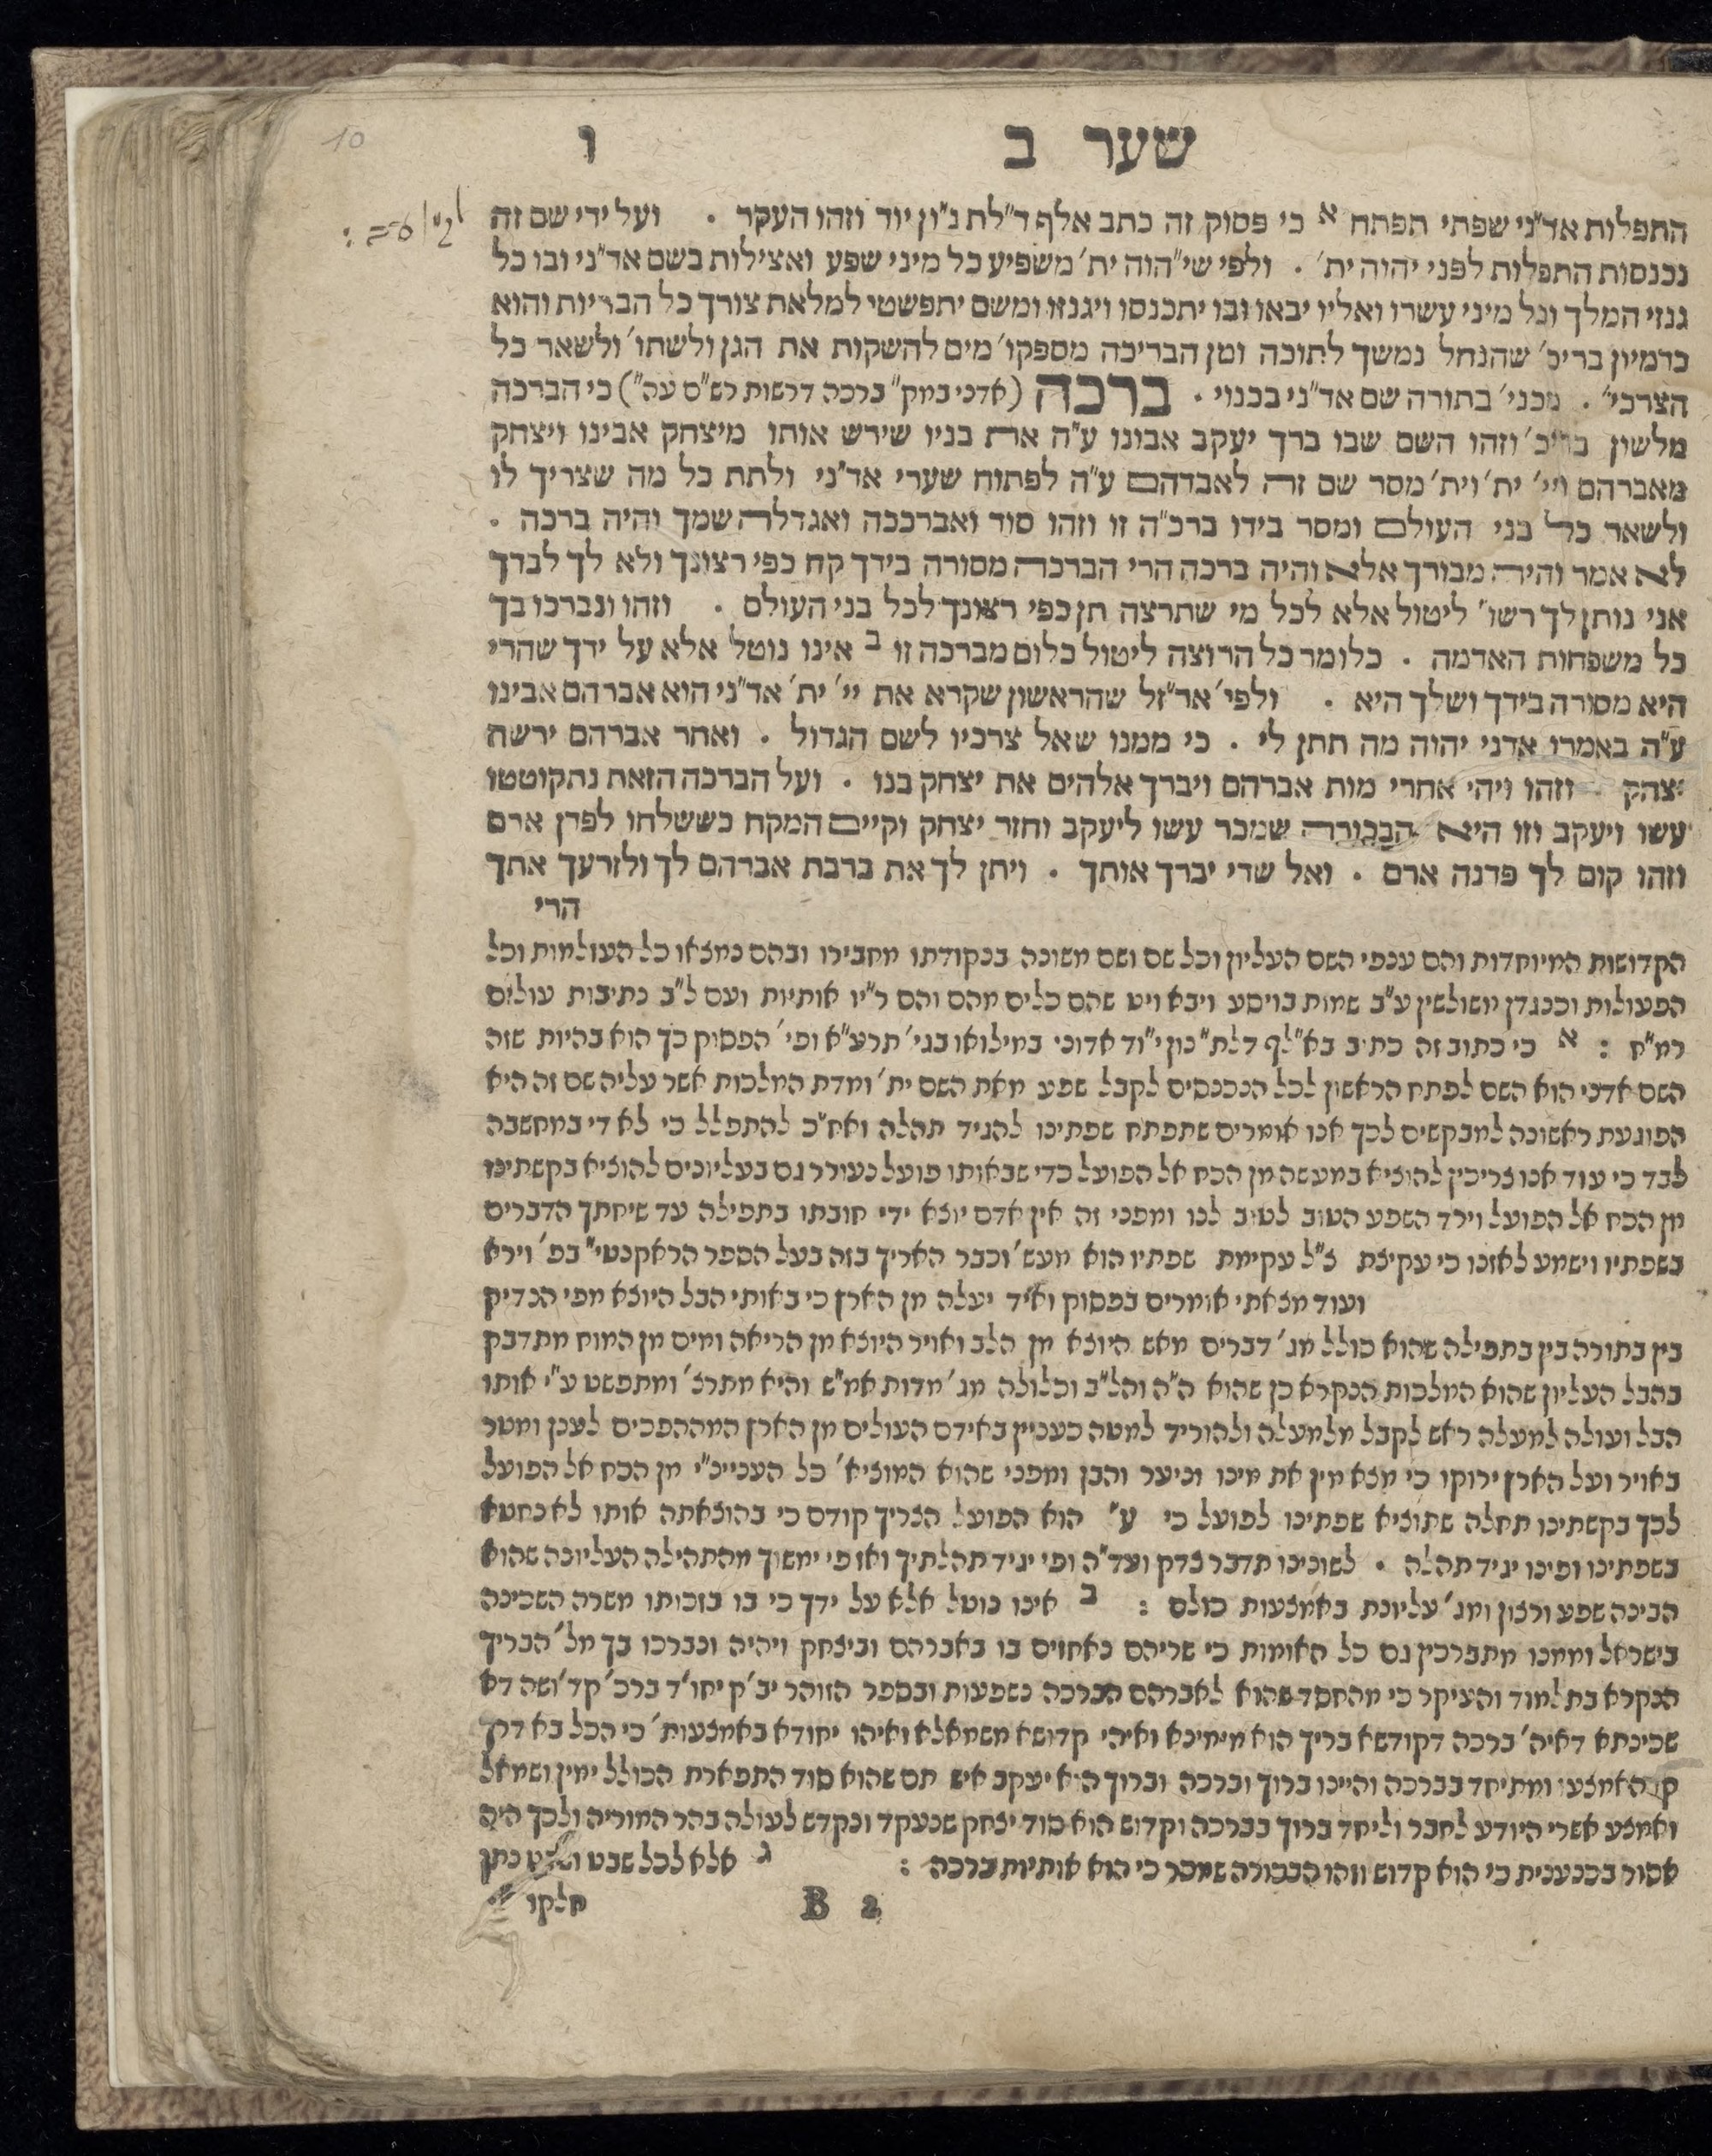 10
שער ב
ו
התפלות אד"ני שפתי תפתח א כי פסוק זה כתב אלף ד"לת נ"ון יוד וזהו העקר . ועל ידי שם זה
נכנסות התפלות לפני יהוה ית' . ולפי שי"הוה ית' משפיע כל מיני שפע ואצילות בשם אד"ני ובו כל
גנזי המלך וכל מיני עשרו ואליו יבאו ובו יתכנסו ויגנזו ומשם יתפשטי למלאת צורך כל הבריות והוא
כדמיון בריכ' שהנחל נמשך לתוכה ומן הבריכה מספקו' מים להשקות את הגן ולשתו' ולשאר כל
הצרכי' . מכני' בתורה שם אד"ני בכנוי . ברכה (אדני במק" ברכה דרשות רש"ס עה") כי הברכה
מלשון בריכ' וזהו השם שבו ברך יעקב אבונו ע"ה את בניו שירש אותו מיצחק אבינו ויצחק
מאברהם ויי' ית' וית' מסר שם זה לאברהם ע"ה לפתוח שערי אד"ני ולתת כל מה שצריך לו
ולשאר כל בני העולם ומסר בידו ברכ"ה זו וזהו סוד ואברככה ואגדלה שמך והיה ברכה .
לא אמר והיה מבורך אלא והיה ברכה הרי הברכה מסורה בידך קח כפי רצונך ולא לך לברך
אני נותן לך רשו' ליטול אלא לכל מי שתרצה תן כפי רצונך לכל בני העולם . וזהו ונברכו בך
כל משפחות האדמה . כלומר כל הרוצה ליטול כלום מברכה זו ב אינו נוטל אלא על ידך שהרי
היא מסורה בידך ושלך היא . ולפי' אר"זל שהראשון שקרא את יי' ית' אד"ני הוא אברהם אבינו
ע"ה באמרו אדני יהוה מה תתן לי . כי ממנו שאל צרכיו לשם הגדול . ואחר אברהם ירשה
יצחק . וזהו ויהי אחרי מות אברהם ויברך אלהים את יצחק בנו . ועל הברכה הזאת נתקוטטו
עשו ויעקב וזו היא הבכורה שמכר עשו ליעקב וחזר יצחק וקיים המקח כששלחו לפדן ארם
וזהו קום לך פדנה ארם . ואל שדי יברך אותך . ויתן לך את ברכת אברהם לך ולזרעך אתך
הרי
הקדושות המיוחדות והם ענפי השם העליון וכל שם ושם משונה בנקודתו מחבירו ובהם נמצאו כל העולמות וכל
הפעולות וכנגדן משולשין ע"ב שמות בויסע ויבא ויט שהם כלים מהם והם רי"ו אותיות ועם ל"ב נתיבות עולים
רמ"ח : א כי כתוב זה כתיב בא"לף דלת" נון י"וד אדוני במילואו בגי' תרע"א ופי' הפסוק כך הוא בהיות שזה
השם אדני הוא השם לפתח הראשון לכל הנכנסים לקבל שפע מאת השם ית' ומדת המלכות אשר עליה שם זה היא
הפוגעת ראשונה למבקשים לכך אנו אומרים שתפתח שפתינו להגיד תהלה ואח"כ להתפלל כי לא די במחשבה
לבד כי עוד אנו צריכין להוציא במעשה מן הכח אל הפועל כדי שבאותו פועל נעורר גם בעליונים להוציא בקשתינו
מן הכח אל הפועל וירד השפע הטוב לטוב לנו ומפני זה אין אדם יוצא ידי חובתו בתפילה עד שיחתך הדברים
בשפתיו וישמע לאזנו כי עקיצת צ"ל עקימת שפתיו הוא מעש' וכבר האריך בזה בעל הספר הראקנטי" בפ' וירא
ועוד מצאתי אומרים בפסוק וא"ד יעלה מן הארץ כי באותי הבל היוצא מפי הצדיק
בין בתורה בין בתפילה שהוא כולל מג' דברים מאש היוצא מן הלב ואויר היוצא מן הריאה ומים מן המוח מתדבק
בהבל העליון שהוא המלכות הנקרא כן שהוא ה"ה והל"ב וכלולה מג' מדות אמ"ש והיא מתרצ' ומתפשט ע"י אותו
הבל ועולה למעלה ראש לקבל מלמעלה ולהוריד למטה כענין באידם העולים מן הארץ המהפכים לענן ומטר
באויר ועל הארץ ירוקו כי מצא מין את מינו וניער והבן ומפני שהוא המוציא' כל העניינ"י מן הכח אל הפועל
לכך בקשתינו תחלה שתוציא שפתינו לפועל כי ע" הוא הפועל הצריך קודם כי בהוצאתה אותו לא נחטא
בשפתינו ופינו יגיד תהלה . לשונינו תדבר צדק ועד"ה ופי יגיד תהלתיך ואז פי ימשוך מהתהילה העליונה שהוא
הבינה שפע ורצון ומג' עליונת באמצעות כולם : ב אינו נוטל אלא על ידך כי בו בזכותו משרה השכינה
בישראל וממנו מתברכין גם כל האומות כי שריהם נאחזים בו באברהם וביצחק ויהיה ונברכו בך מל' הבריך
הנקרא בתלמוד והעיקר כי מהחסד שהוא לאברהם הברכה נשפעות ובספר הזוהר יב'ק יחו'ד ברכ' קד'ושה דא
שכינתא דאיה' ברכה דקודשא בריך הוא מימינא ואיהי קדושא משמאלא ואיהו יחודא באמצעות' כי הכל בא דרך
קו האמצעי ומתיחד בברכה והיינו ברוך וברכה וברוך הוא יעקב איש תם שהוא סוד התפארת הכולל ימין ושמאל
ואמצע אשרי היודע לחבר וליחד ברוך בברכה וקדוש הוא סוד יצחק שנעקד ונקדש לעולה בהר המוריה ולכך היה
אסור בכנענית כי הוא קדוש וזהו הבכורה שמכר כי הוא אותיות ברכה : ג אלא לכל שבט ושבט נתן
B 2
חלקו